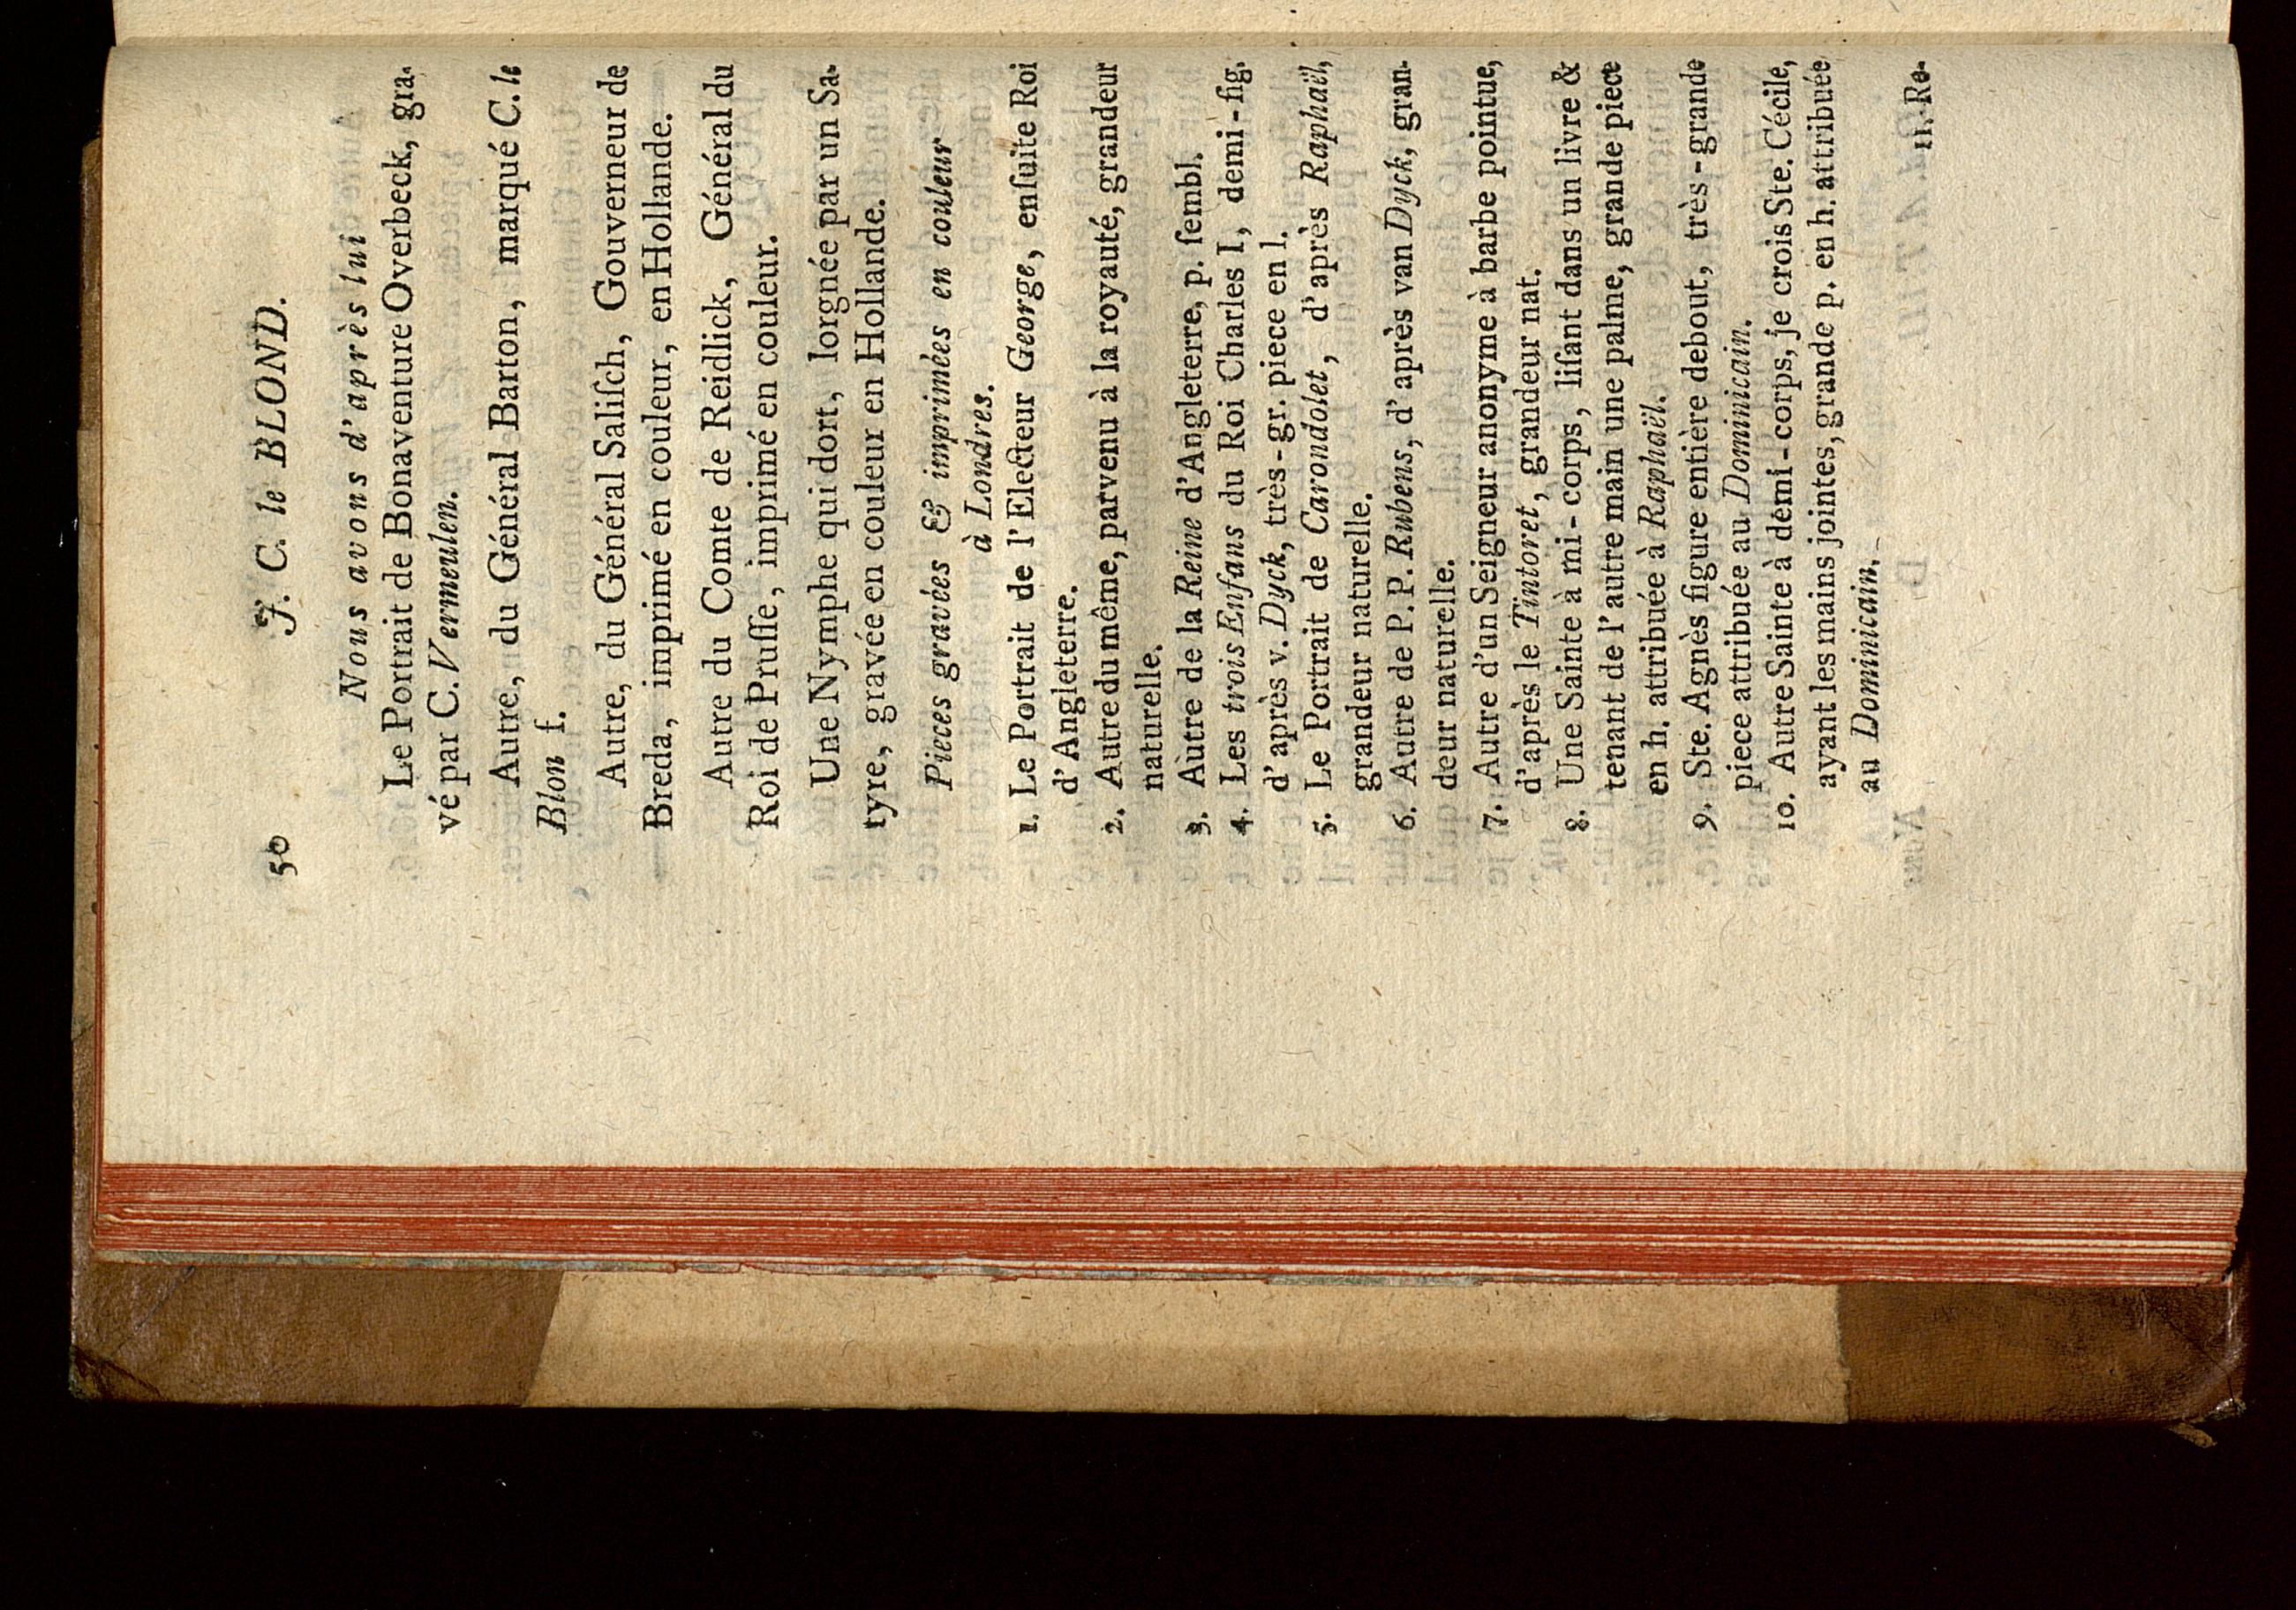 50 J. C. le BLOND.
Nous avons d'après lui
Le Portrait de Bonaventure Overbeck, gra-
vé par C. Vermeulen.
Autre, du Général Barton, marqué C. le
Blon f.
Autre, du Général Saliſch, Gouverneur de
Breda, imprimé en couleur, en Hollande.
Autre du Comte de Reidlick, Général du
Roi de Pruſſe, imprimé en couleur.
Une Nymphe qui dort, lorgnée par un Sa-
tyre, gravée en couleur en Hollande.
Pieces gravées & imprimées en couleur
à Londres.
1. Le Portrait de l'Electeur George, enſuite Roi
d'Angleterre.
2. Autre du même, parvenu à la royauté, grandeur
naturelle.
3. Autre de la Reine d'Angleterre, p. ſembl.
4. Les trois Enfans du Roi Charles I, demi-fig.
d'après v. Dyck, très-gr. piece en l.
5. Le Portrait de Carondolet, d'après Raphaël,
grandeur naturelle.
6. Autre de P. P. Rubens, d'après van Dyck, gran-
deur naturelle.
7. Autre d'un Seigneur anonyme à barbe pointue,
d'après le Tintoret, grandeur nat.
8. Une Sainte à mi-corps, liſant dans un livre &
tenant de l'autre main une palme, grande piece
en h. attribuée à Raphaël.
9. Ste. Agnès figure entière debout, très-grande
piece attribuée au Dominicain.
10. Autre Sainte à demi-corps, je crois Ste. Cécile,
ayant les mains jointes, grande p. en h. attribuée
au Dominicain.
11. Re-